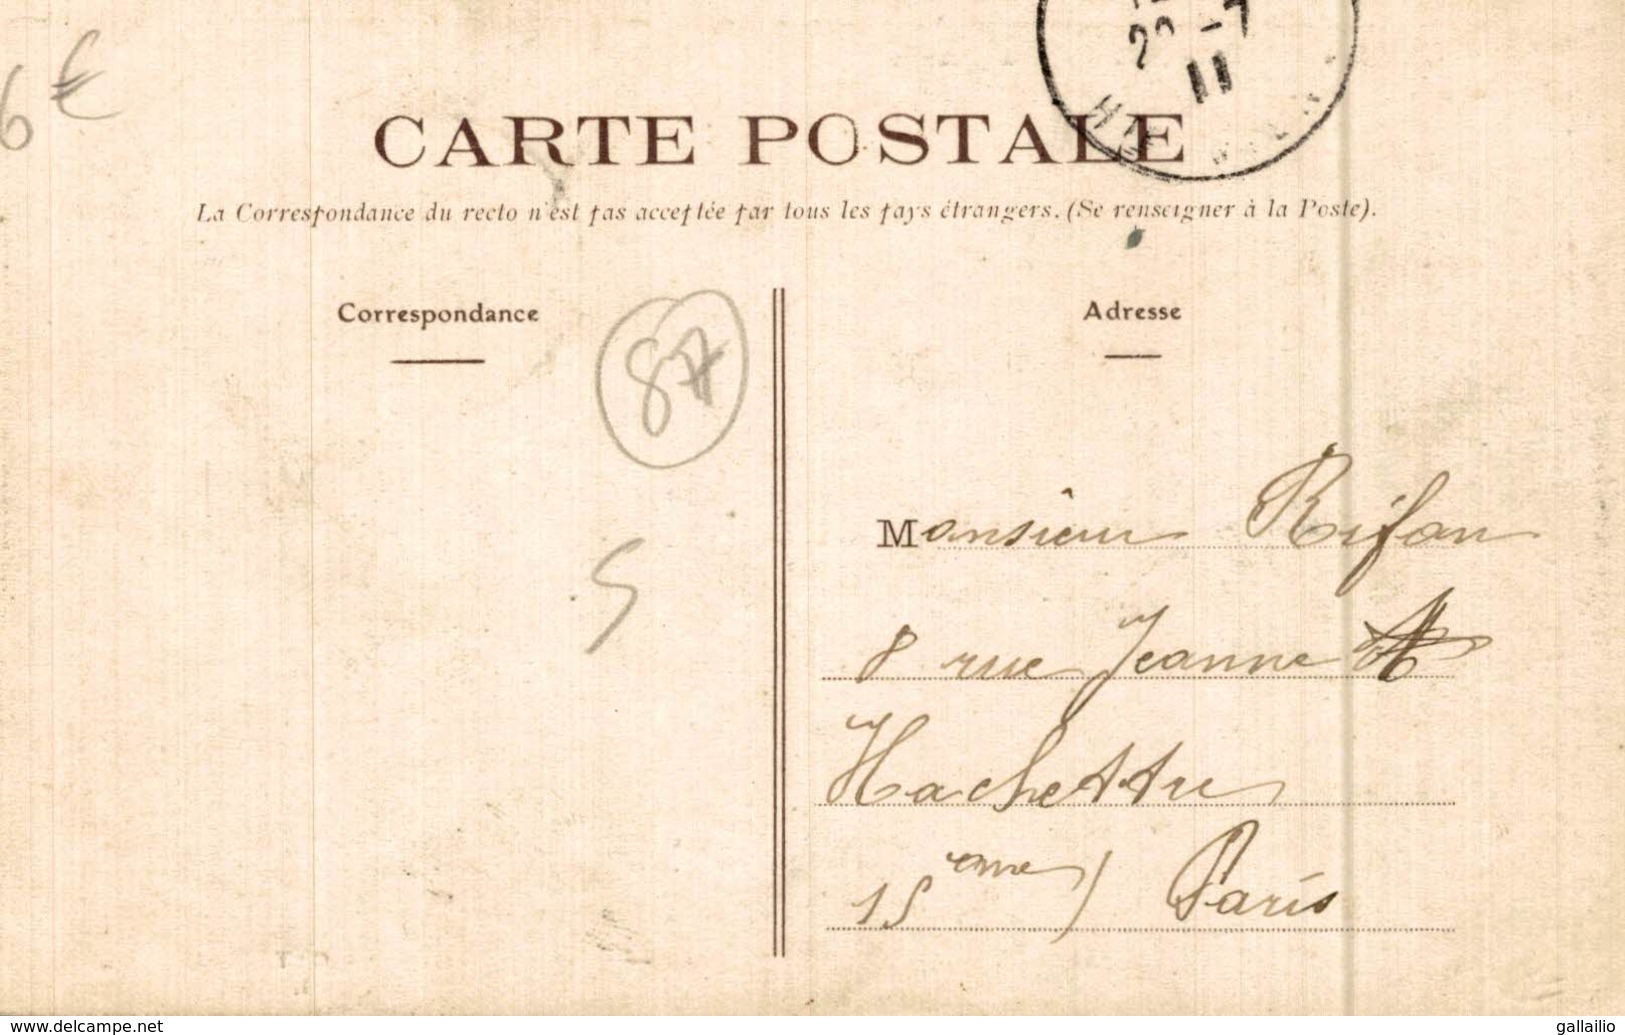 6€
-7
11
CARTE POSTALE
La Correspondance du recto n'est pas acceptée par tous les pays étrangers. (Se renseigner à la Poste).
Correspondance
87
S
Adresse
Monsieur Rifan
8 rue Jeanne
Hachettre
15eme) Paris
www.delcampe.net
gallailio